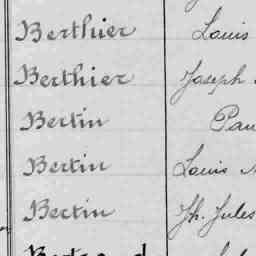 Berthier Louis
Berthier Joseph
Bertin Pau
Bertin Louis
Bertin Jh. Jules